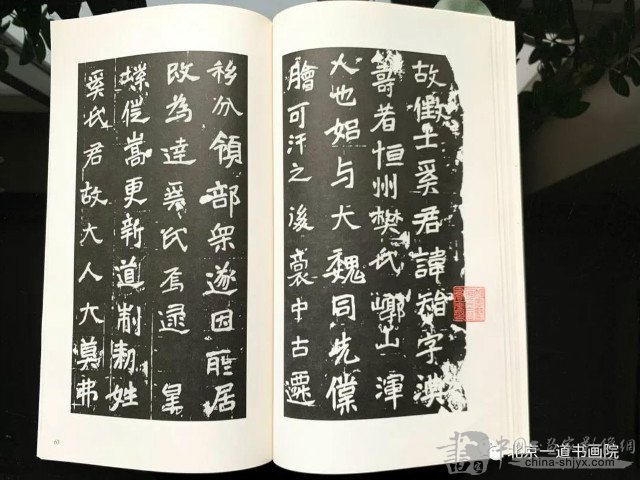 故徵士奚君諱智字淟
者恒州樊氏崞山渾
人也始与大魏同先僕
膾可汗之後裔中古遷
移分領部衆遂因所居
改為逹奚氏焉逮皇
徙嵩更新道制勑姓
奚氏君故大人大莫弗
書
北京一道书画院
china-shjyx.com